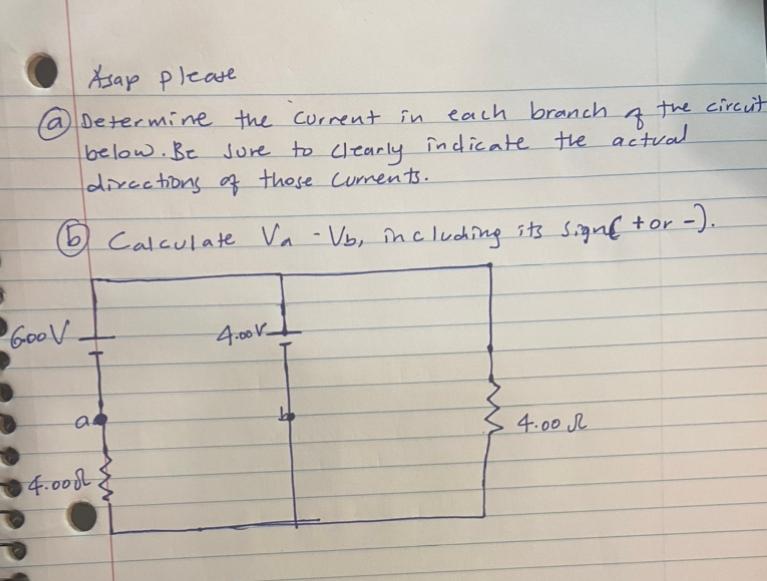 Asap please
ⓐ Determine the current in each branch of the circuit
below. Be sure to clearly indicate the actual
directions of those currents.
ⓑ Calculate Va - Vb, including its sign( + or -).
600V
4.00V
a
b
4.00Ω
4.00Ω